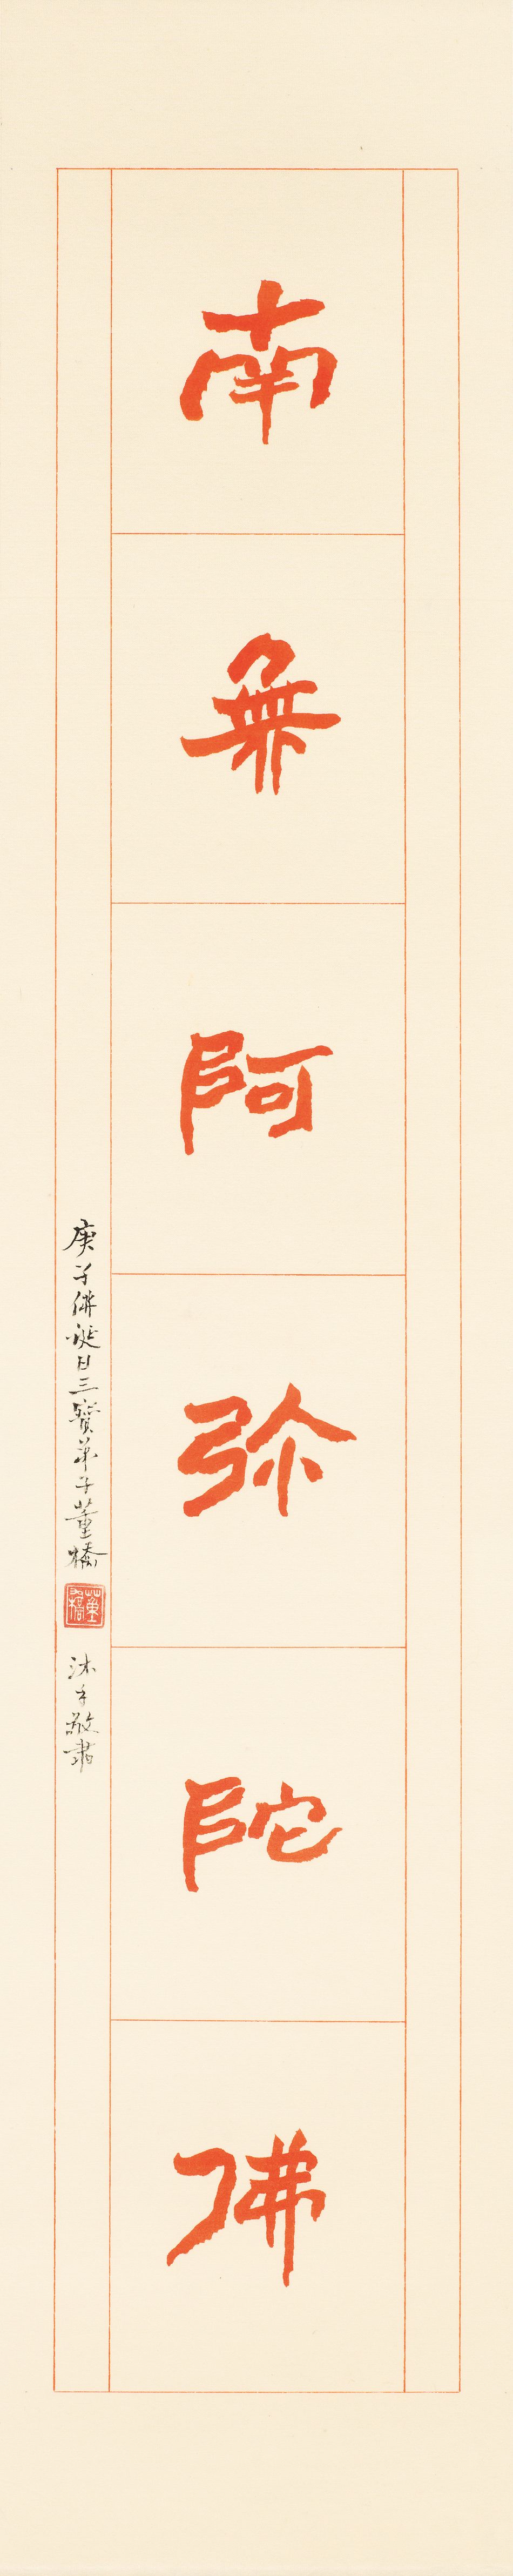 南無阿弥陀佛
庚子佛诞日三寶弟子董橋
董橋
沐手敬書